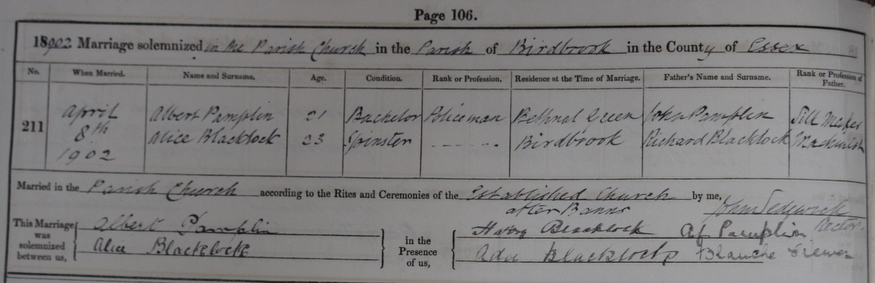 Page 106.
1902 Marriage solemnized in the Parish Church in the Parish of Birdbrook in the County of Essex
No. When Married. Name and Surname. Age. Condition. Rank or Profession. Residence at the Time of Marriage. Father's Name and Surname. Rank or Profession of Father.
211 April 8th 1902 Albert Pamplin 21 Bachelor Policeman Bethnal Green John Pamplin
Alice Blacklock 23 Spinster Birdbrook Richard Blacklock Machinist
Married in the Parish Church according to the Rites and Ceremonies of the Established Church by me,
after Banns John Sedgwick Rector
This Marriage was solemnized between us, Albert Pamplin Alice Blacklock
in the Presence of us, Harry Blacklock Pamplin
Ada Blacklock Blanche